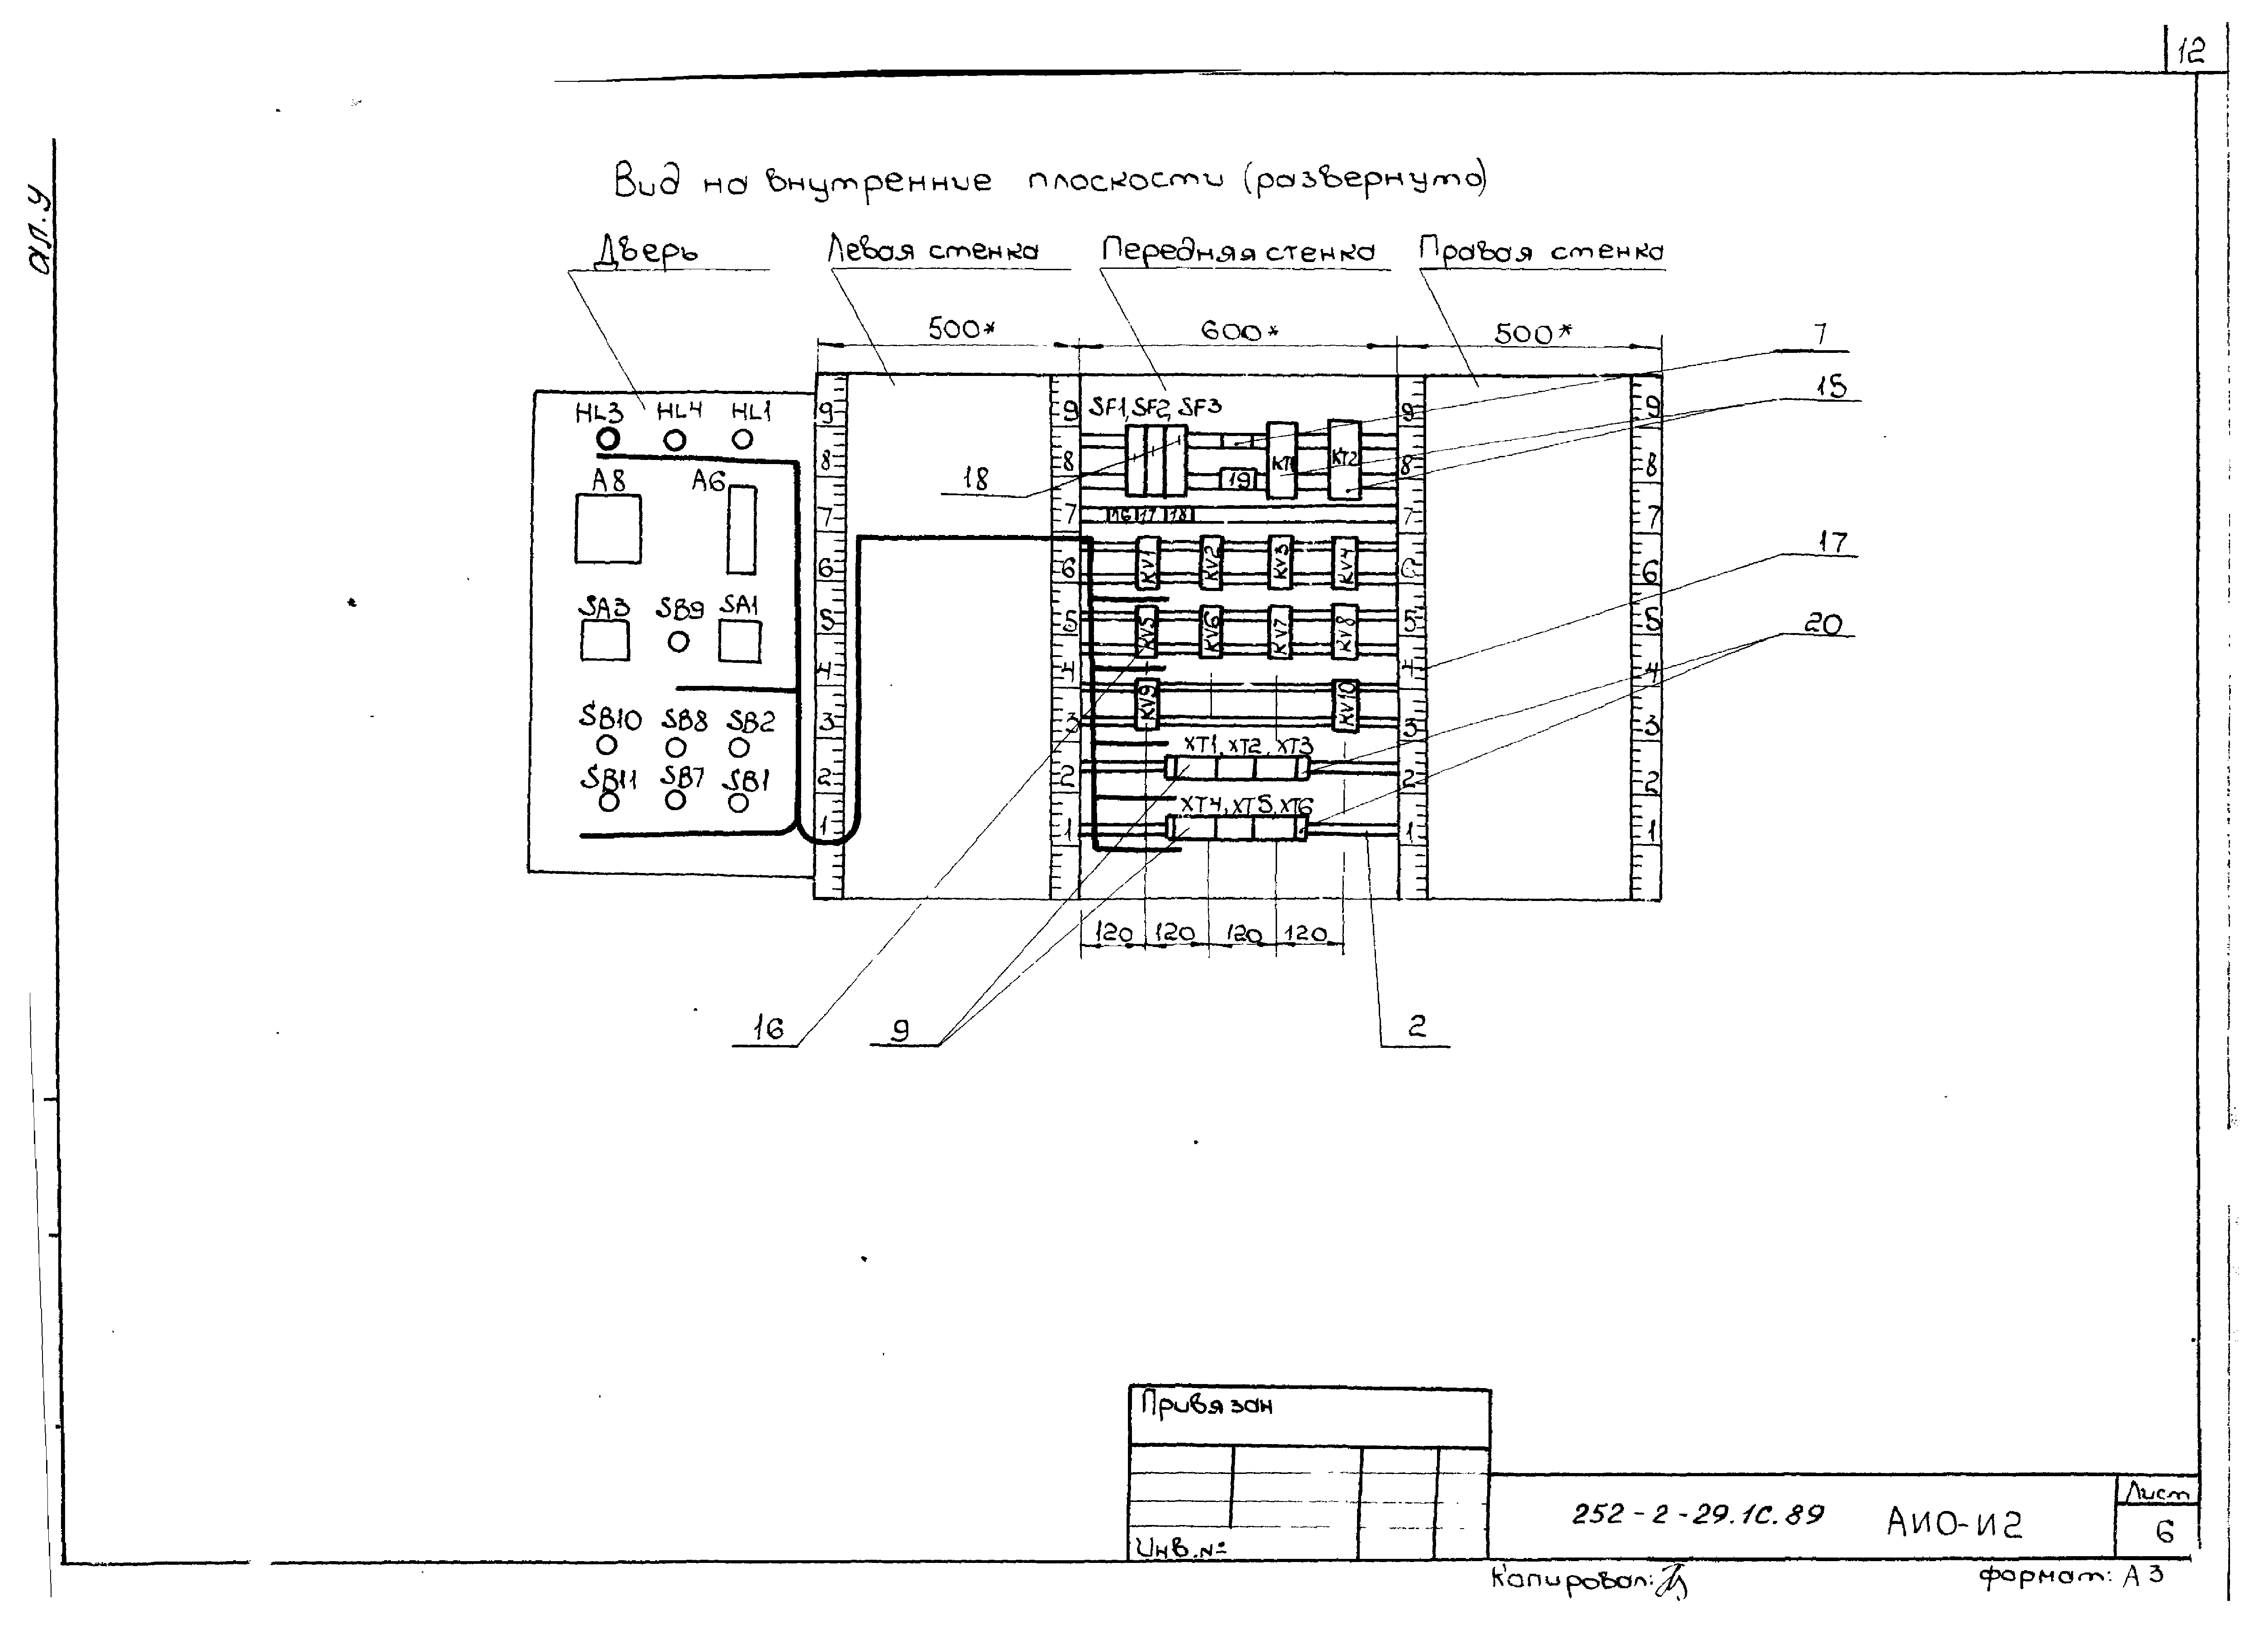 12
ал.У
Вид на внутренние плоскости (развернуто)
Дверь
Левая стенка
Передняя стенка
Правая стенка
500*
600*
500*
7
15
17
20
18
HL3 HL4 HL1
A8 A6
SA3 SB9 SA1
SB10 SB8 SB2
SB11 SB7 SB1
9
8
7
6
5
4
3
2
1
9
8
7
6
5
4
3
2
1
SF1, SF2, SF3
КТ1 КТ2
19
16 17 18
KV1 KV2 KV3 KV4
KV5 KV6 KV7 KV8
KV9 KV10
XT1, XT2, XT3
XT4, XT5, XT6
9
8
7
6
5
4
3
2
1
9
8
7
6
5
4
3
2
1
120 120 120 120
16
9
2
Привязан
Инв.№
252-2-29.1С.89 АИО-И2
Лист
6
Копировал:
формат: А3